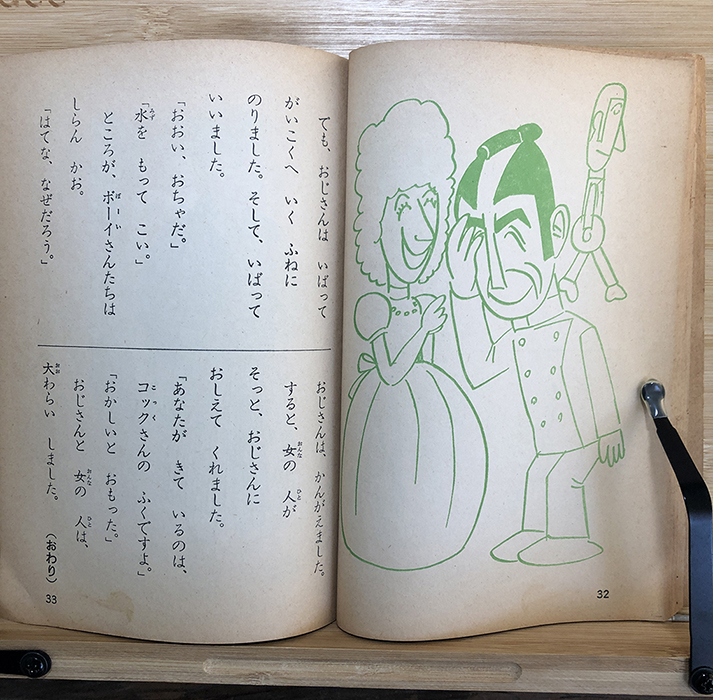 32
でも、おじさんは いばって
がいこくへ いく ふねに
のりました。そして、いばって
いいました。
「おおい、おちゃだ。」
みず
「水を もって こい。」
ぼーい
ところが、ボーイさんたちは
しらん かお。
「はてな、なぜだろう。」
おじさんは、かんがえました。
おんな ひと
すると、女の 人が
そっと、おじさんに
おしえて くれました。
「あなたが きて いるのは、
こっく
コックさんの ふくですよ。」
「おかしいと おもった。」
おんな ひと
おじさんと 女の 人は、
おお
大わらい しました。 (おわり)
33